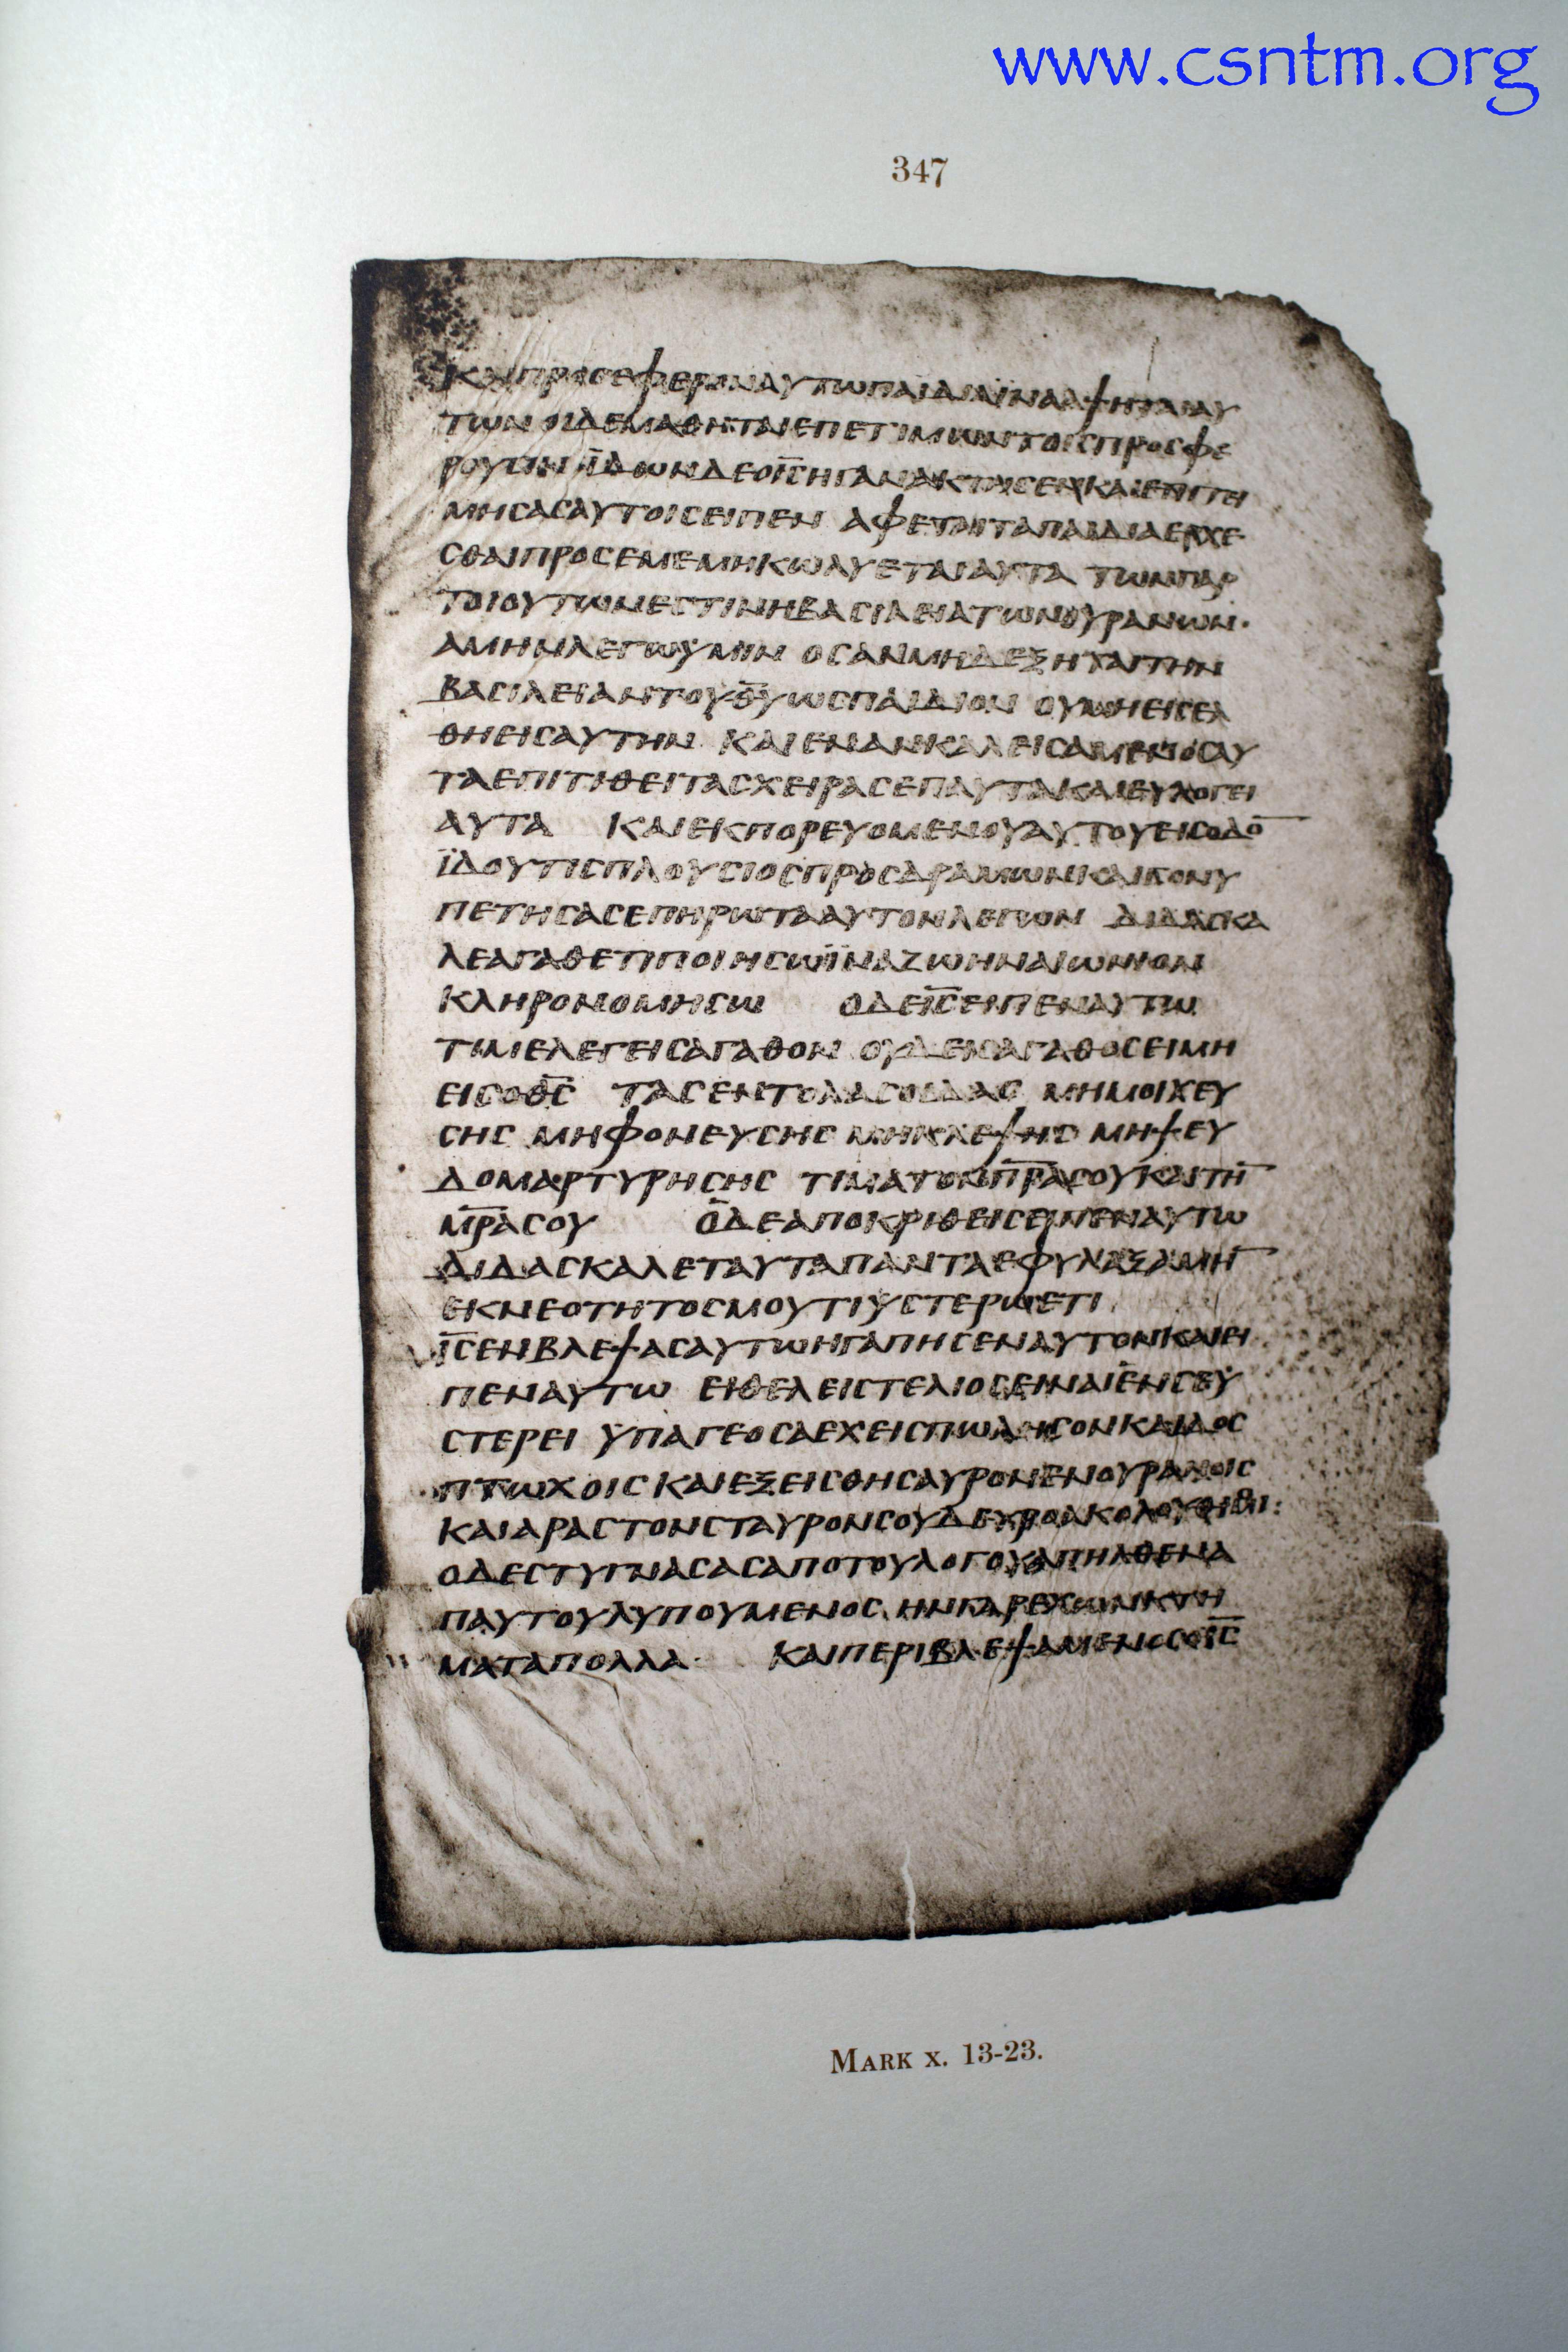 www.csntm.org
347
ΚΑΙΠΡΟϹΕΦΕΡΟΝΑΥΤΩΠΑΙΔΙΑΪΝΑΑΨΗΤΑΙΑΥ
ΤΩΝ ΟΙΔΕΜΑΘΗΤΑΙΕΠΕΤΙΜΩΝΤΟΙϹΠΡΟϹΦΕ
ΡΟΥϹΙΝ ΪΔΩΝΔΕΟΙ̅Ϲ̅ΗΓΑΝΑΚΤΗϹΕΝΚΑΙΕΠΙΤΕΙ
ΜΗϹΑϹΑΥΤΟΙϹΕΙΠΕΝ ΑΦΕΤΕΤΑΠΑΙΔΙΑΕΡΧΕ
ϹΘΑΙΠΡΟϹΕΜΕΜΗΚΩΛΥΕΤΑΙΑΥΤΑ ΤΩΝΓΑΡ
ΤΟΙΟΥΤΩΝΕϹΤΙΝΗΒΑϹΙΛΕΙΑΤΩΝΟΥΡΑΝΩΝ·
ΑΜΗΝΛΕΓΩΥΜΙΝ ΟϹΑΝΜΗΔΕΞΗΤΑΙΤΗΝ
ΒΑϹΙΛΕΙΑΝΤΟΥΘ̅Υ̅ΩϹΠΑΙΔΙΟΝ ΟΥΜΗΕΙϹΕΛ
ΘΗΕΙϹΑΥΤΗΝ ΚΑΙΕΝΑΝΚΑΛΕΙϹΑΜΕΝΟϹΑΥ
ΤΑΕΠΙΤΙΘΕΙΤΑϹΧΕΙΡΑϹΕΠΑΥΤΑΚΑΙΕΥΛΟΓΕΙ
ΑΥΤΑ ΚΑΙΕΚΠΟΡΕΥΟΜΕΝΟΥΑΥΤΟΥΕΙϹΟΔΟ̅
ΪΔΟΥΤΙϹΠΛΟΥϹΙΟϹΠΡΟϹΔΡΑΜΩΝΚΑΙΓΟΝΥ
ΠΕΤΗϹΑϹΕΠΗΡΩΤΑΑΥΤΟΝΛΕΓΩΝ ΔΙΔΑϹΚΑ
ΛΕΑΓΑΘΕΤΙΠΟΙΗϹΩΪΝΑΖΩΗΝΑΙΩΝΙΟΝ
ΚΛΗΡΟΝΟΜΗϹΩ ΟΔΕΙ̅Ϲ̅ΕΙΠΕΝΑΥΤΩ
ΤΙΜΕΛΕΓΕΙϹΑΓΑΘΟΝ ΟΥΔΕΙϹΑΓΑΘΟϹΕΙΜΗ
ΕΙϹΟΘ̅Ϲ̅ ΤΑϹΕΝΤΟΛΑϹΟΙΔΑϹ ΜΗΜΟΙΧΕΥ
ϹΗϹ ΜΗΦΟΝΕΥϹΗϹ ΜΗΚΛΕΨΗϹ ΜΗΨΕΥ
ΔΟΜΑΡΤΥΡΗϹΗϹ ΤΙΜΑΤΟΝΠ̅Ρ̅Α̅ϹΟΥΚΑΙΤΗ̅
Μ̅Ρ̅Α̅ϹΟΥ ΟΔΕΑΠΟΚΡΙΘΕΙϹΕΙΠΕΝΑΥΤΩ
ΔΙΔΑϹΚΑΛΕΤΑΥΤΑΠΑΝΤΑΕΦΥΛΑΞΑΜΗ̅
ΕΚΝΕΟΤΗΤΟϹΜΟΥΤΙΥϹΤΕΡΩΕΤΙ
Ι̅Ϲ̅ΕΝΒΛΕΨΑϹΑΥΤΩΗΓΑΠΗϹΕΝΑΥΤΟΝΚΑΙΕΙ
ΠΕΝΑΥΤΩ ΕΙΘΕΛΕΙϹΤΕΛΙΟϹΕΙΝΑΙΕΝϹΕΥ
ϹΤΕΡΕΙ ΥΠΑΓΕΟϹΑΕΧΕΙϹΠΩΛΗϹΟΝΚΑΙΔΟϹ
ΠΤΩΧΟΙϹ ΚΑΙΕΞΕΙϹΘΗϹΑΥΡΟΝΕΝΟΥΡΑΝΟΙϹ
ΚΑΙΑΡΑϹΤΟΝϹΤΑΥΡΟΝϹΟΥΔΕΥΡΟΑΚΟΛΟΥΘΙΜΟΙ:
ΟΔΕϹΤΥΓΝΑϹΑϹΑΠΟΤΟΥΛΟΓΟΥΑΠΗΛΘΕΝΑ
ΠΑΥΤΟΥΛΥΠΟΥΜΕΝΟϹ ΗΝΓΑΡΕΧΩΝΚΤΗ
ΜΑΤΑΠΟΛΛΑ· ΚΑΙΠΕΡΙΒΛΕΨΑΜΕΝΟϹΟΙ̅Ϲ̅
MARK X. 13-23.